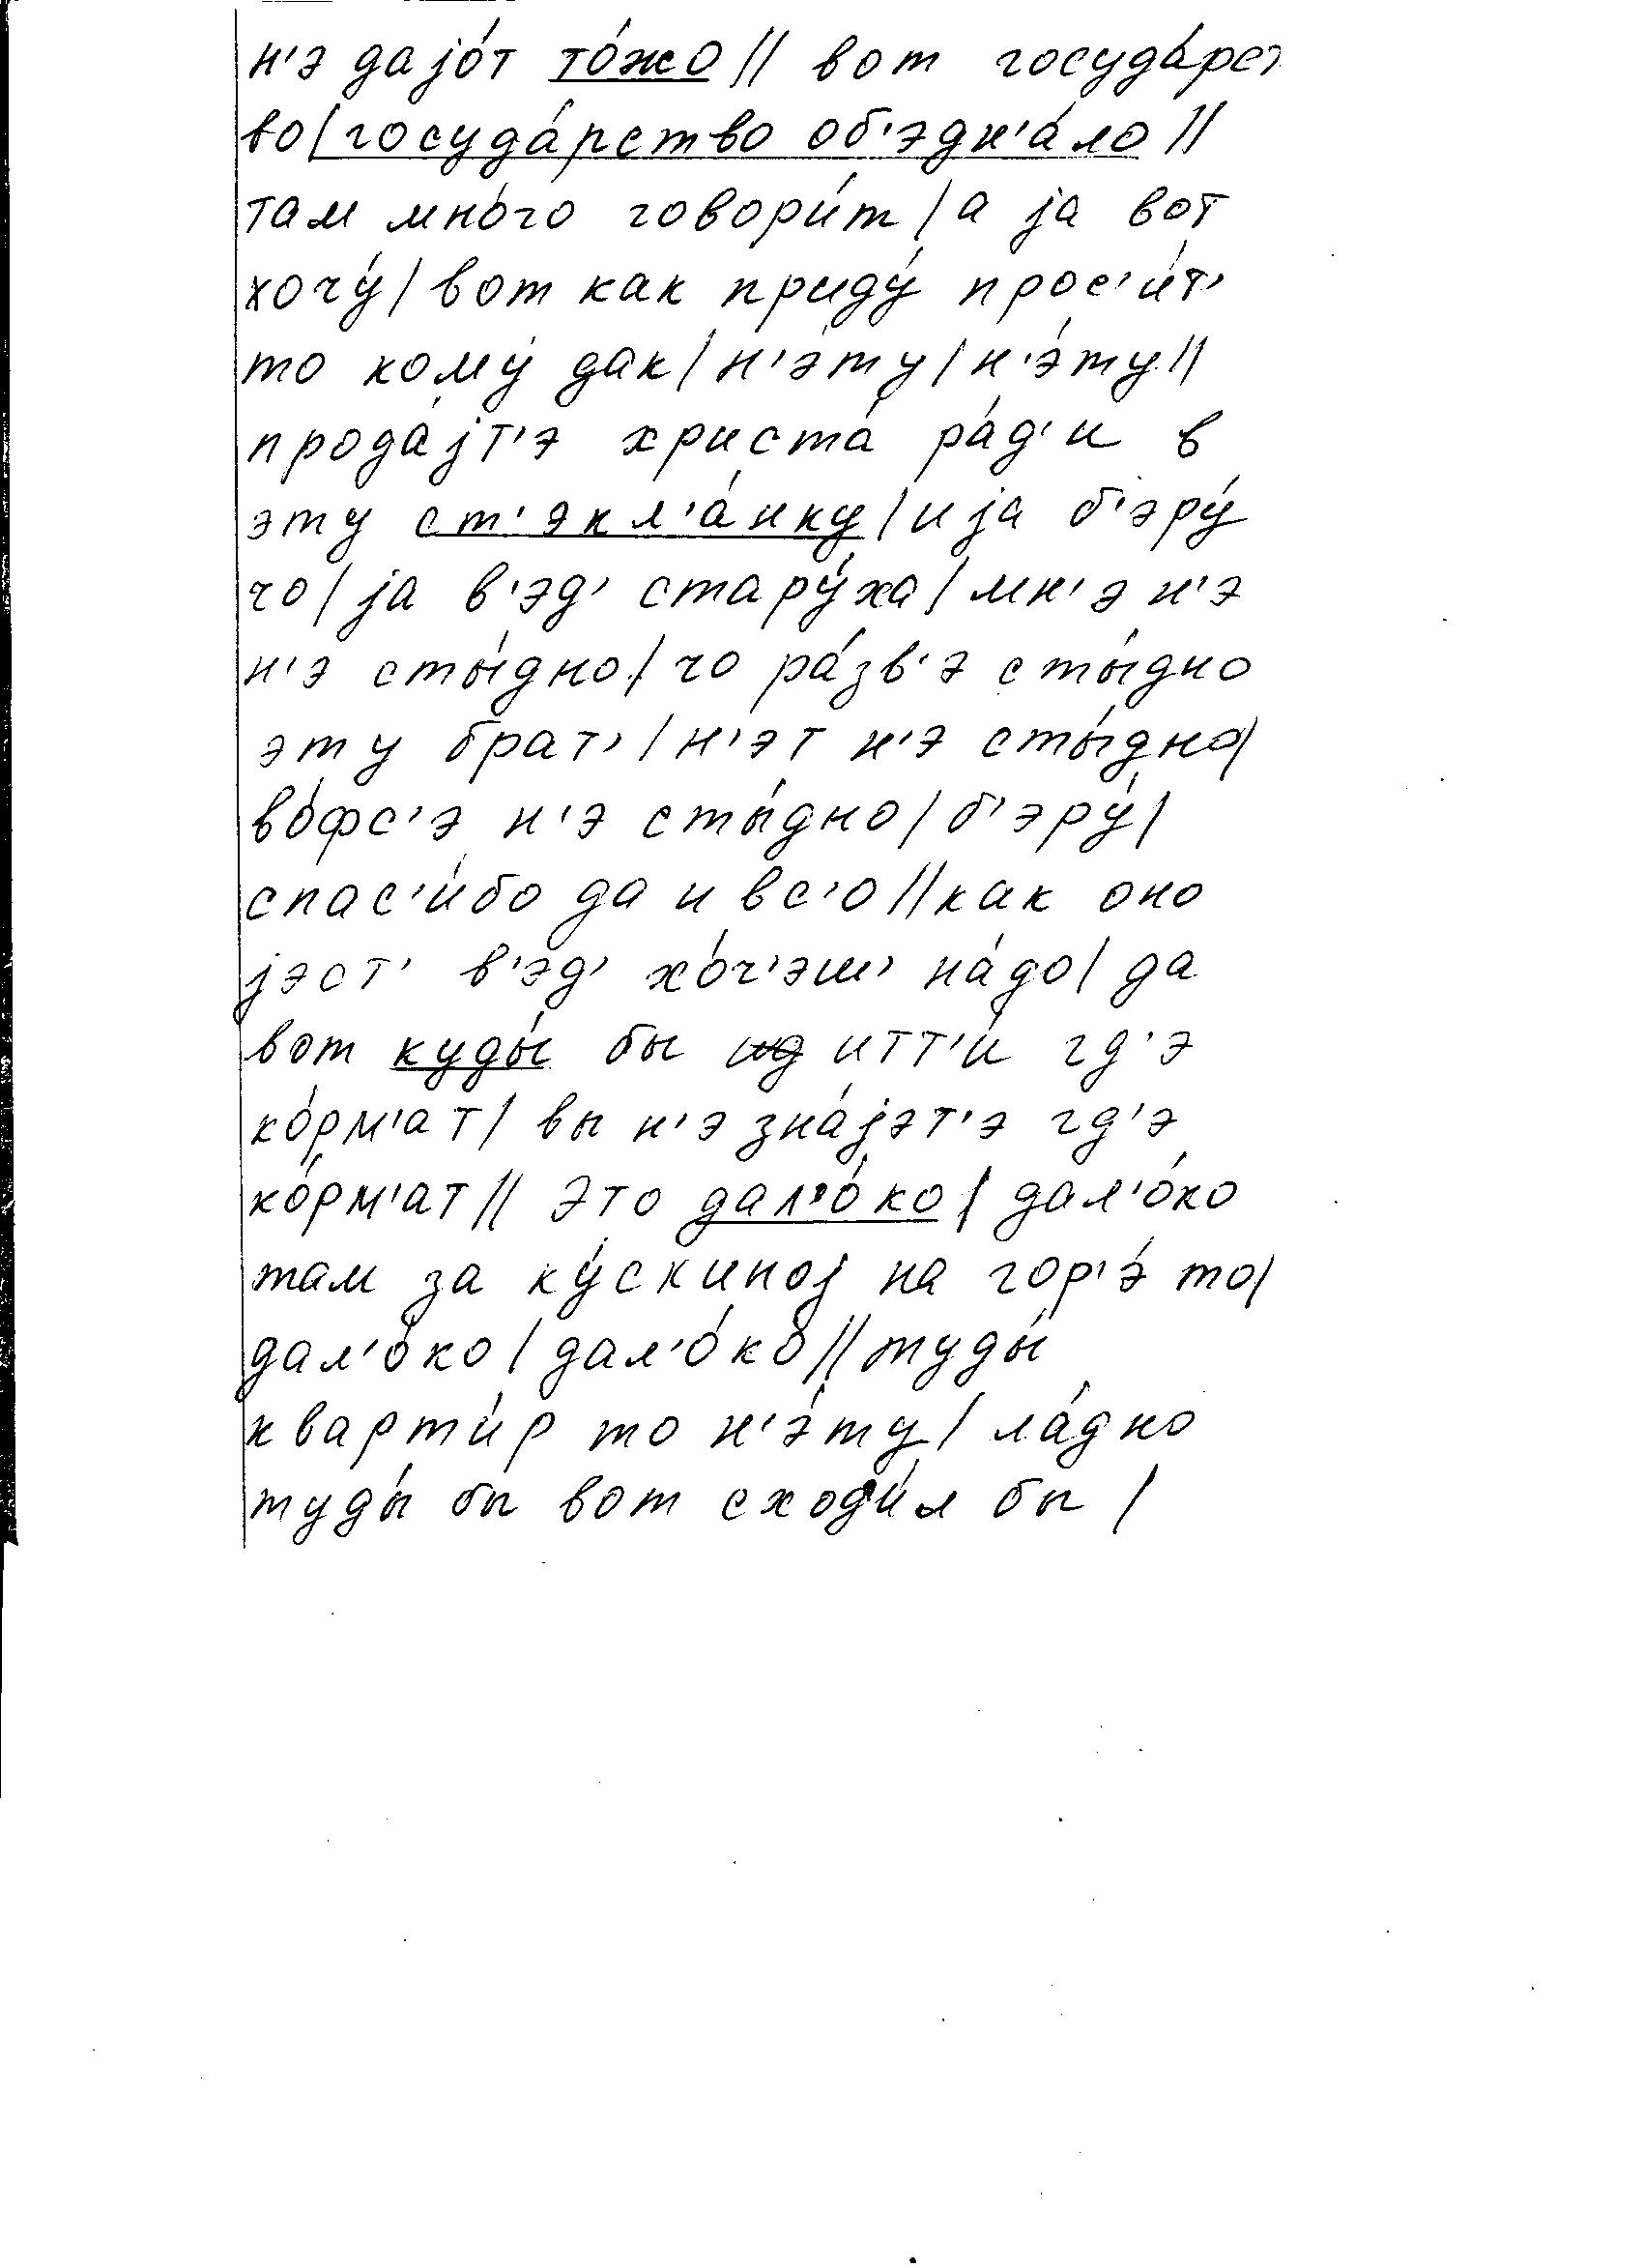 н'э даjо́т то́жо // вот госуда́рст
во / госуда́рство об'эдн'а́ло //
там мно́го говори́т / а jа вот
хочу́ / вот как приду́ прос'и́т'
то кому́ дак / н'э́ту / н'э́ту //
прода́jт'э христа́ ра́д'и в
эту ст'экл'а́нку / и jа б'эру́
чо / jа в'эд' стару́ха / мн'э н'э
н'э сты́дно / чо ра́зв'э сты́дно
эту брат' / н'эт н'э сты́дно /
во́фс'э н'э сты́дно / б'эру́ /
спас'и́бо да и вс'о // как оно
jэст' в'эд' хо́ч'эш' на́до / да
вот куды́ бы ид итт'и́ гд'э
ко́рм'ат / вы н'э зна́jэт'э гд'э
ко́рм'ат // это дал'о́ко / дал'о́ко
там за ку́скиноj на гор'э́ то /
дал'о́ко / дал'о́ко // туды́
кварти́р то н'э́ту / ла́дно
туды́ бы вот сходи́л бы /